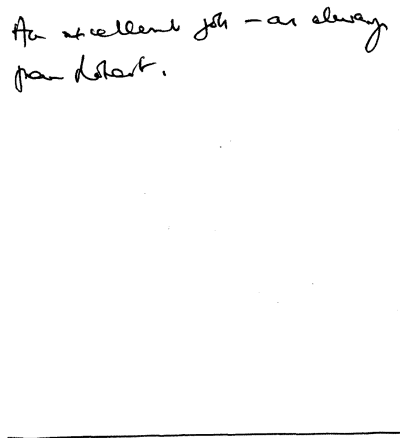 An excellent job - as always
from Robert.